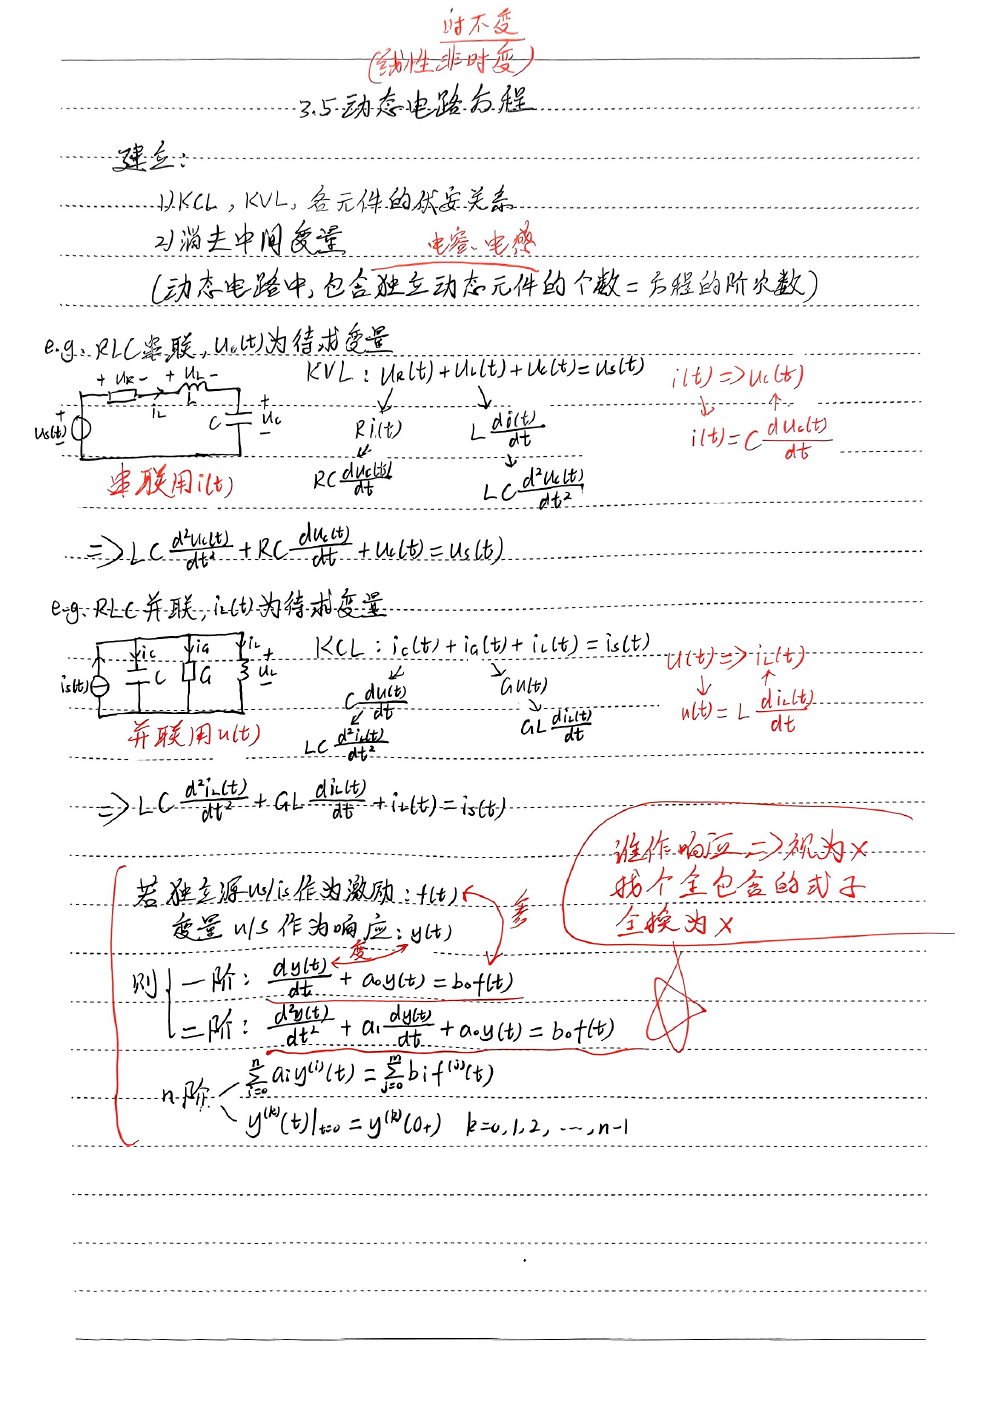 时不变
(线性非时变)
3.5 动态电路方程
建立:
1) KCL, KVL, 各元件的伏安关系
2) 消去中间变量
电容、电感
(动态电路中, 包含独立动态元件的个数 = 方程的阶次数)
e.g. RLC串联, uc(t)为待求变量
+ uR - + uL -
iL L
us(t) + - C + uc -
串联用i(t)
KVL: uR(t) + uL(t) + uc(t) = us(t)
Ri(t) L di(t)/dt
RC duc(t)/dt LC d²uc(t)/dt²
i(t) => uc(t)
i(t) = C duc(t)/dt
=> LC d²uc(t)/dt² + RC duc(t)/dt + uc(t) = us(t)
e.g. RLC并联, iL(t)为待求变量
ic iG iL
is(t) C G + uL -
并联用u(t)
KCL: ic(t) + iG(t) + iL(t) = is(t)
C du(t)/dt Gu(t)
LC d²iL(t)/dt² GL diL(t)/dt
u(t) => iL(t)
u(t) = L diL(t)/dt
=> LC d²iL(t)/dt² + GL diL(t)/dt + iL(t) = is(t)
谁作响应 => 视为x
找个全包含的式子
全换为x
若独立源us/is作为激励: f(t)
变量u/s作为响应: y(t)
变
则 一阶: dy(t)/dt + a₀y(t) = b₀f(t)
二阶: d²y(t)/dt² + a₁ dy(t)/dt + a₀y(t) = b₀f(t)
n阶 ∑ⁿᵢ₌₀ aᵢy⁽ⁱ⁾(t) = ∑ᵐⱼ₌₀ bᵢf⁽ʲ⁾(t)
y⁽ᵏ⁾(t)|t=0 = y⁽ᵏ⁾(0₊) k=0,1,2, ..., n-1